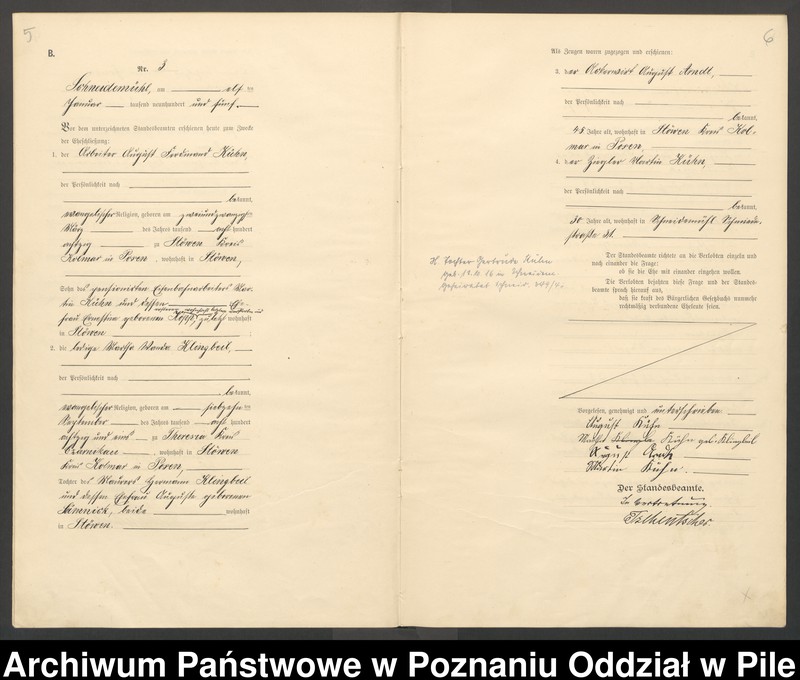 5
B.
Nr. 3
Schneidemühl, am elf ten
Januar tausend neunhundert und fünf
Vor dem unterzeichneten Standesbeamten erschienen heute zum Zwecke
der Eheschließung:
1. der Arbeiter August Ferdinand Kühn,
der Persönlichkeit nach
bekannt,
evangelischer Religion, geboren am zweiundzwanzigsten
März des Jahres tausend acht hundert
achtzig zu Stöwen Kreis
Kolmar in Posen, wohnhaft in Stöwen,
Sohn des pensionirten Eisenbahnarbeiters Martin
Kühn und dessen Ehefrau
Ernestine geborenen zuletzt wohnhaft
in Stöwen
2. die ledige Martha Wanda Klingbeil,
der Persönlichkeit nach
bekannt,
evangelischer Religion, geboren am siebzehnten
September des Jahres tausend acht hundert
achtzig und eins zu Theresia Kreis
Czarnikau, wohnhaft in Stöwen
Kreis Kolmar in Posen,
Tochter des Maurers Hermann Klingbeil
und dessen Ehefrau Auguste geborenen
beide wohnhaft
in Stöwen.
6
Als Zeugen waren zugezogen und erschienen:
3. der Ackerwirt August Arndt,
der Persönlichkeit nach
bekannt,
48 Jahre alt, wohnhaft in Stöwen Kreis Kolmar
in Posen,
4. der Ziegler Martin Kühn,
der Persönlichkeit nach
bekannt,
30 Jahre alt, wohnhaft in Schneidemühl
straße
Der Standesbeamte richtete an die Verlobten einzeln und
nach einander die Frage:
ob sie die Ehe mit einander eingehen wollen.
Die Verlobten bejahten diese Frage und der Standesbeamte
sprach hierauf aus,
daß sie kraft des Bürgerlichen Gesetzbuchs nunmehr
rechtmäßig verbundene Eheleute seien.
Tochter Gertrude Kühn
Vorgelesen, genehmigt und unterschrieben
August Kühn
Kühn geb. Klingbeil
August Arndt
Martin Kühn.
Der Standesbeamte.
In Vertretung.
Archiwum Państwowe w Poznaniu Oddział w Pile